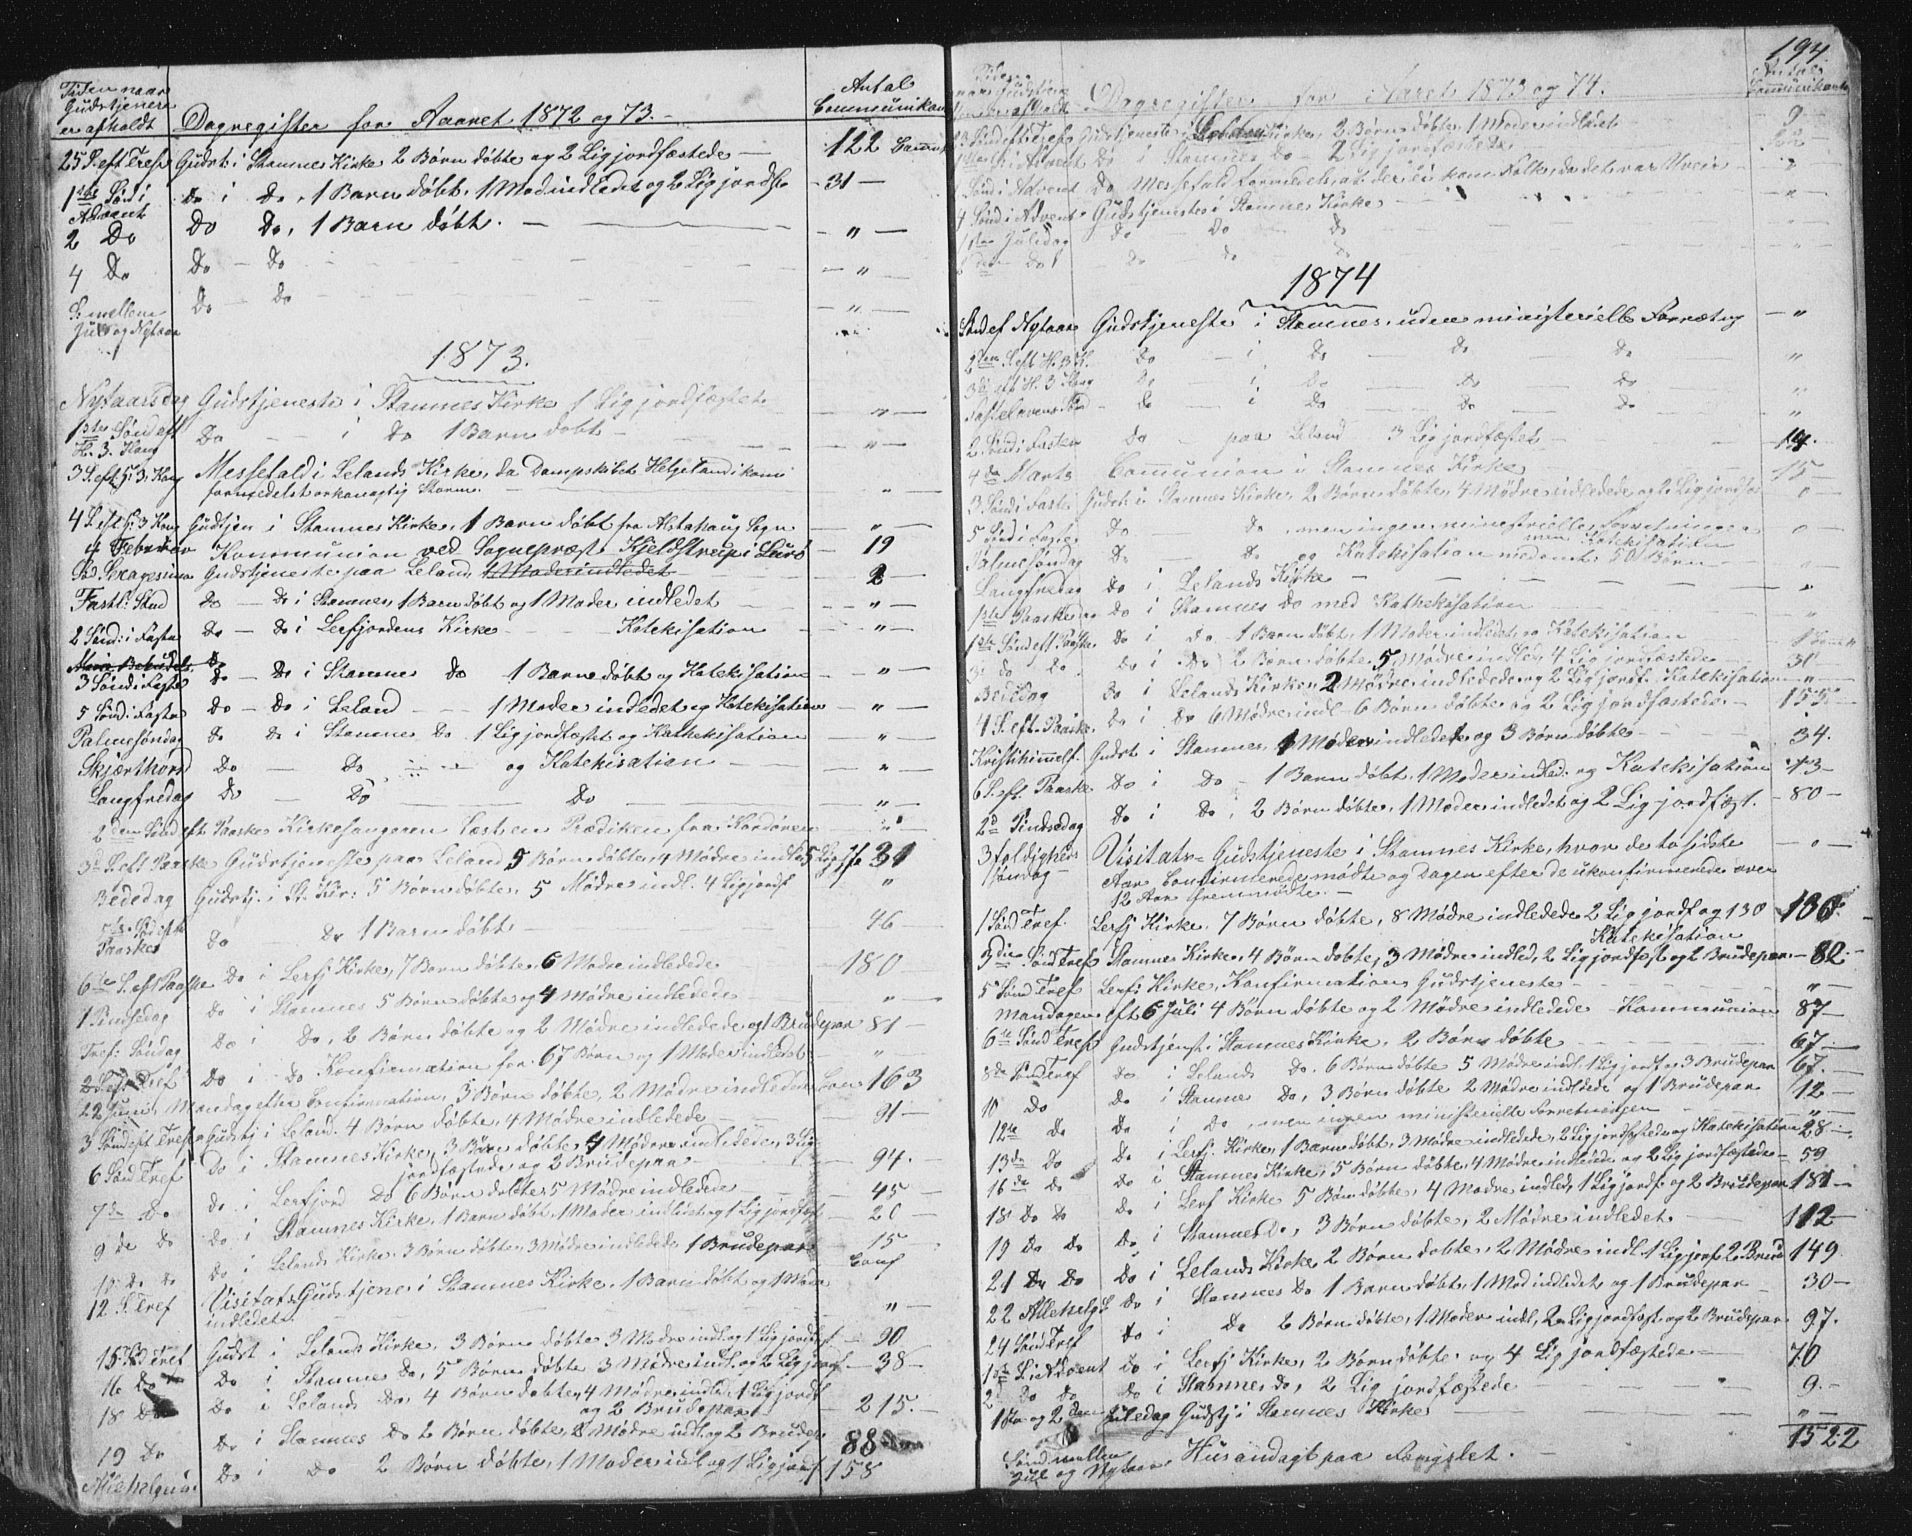 Tiden naar Gudstjenere er afholdt
Dagregister for Aaaret 1872 og 73.
Antal Communikan
25 S. eft Tref Gudst: i Stamnes Kirke 2 Børn døbte og 2 Lig jordfæstede — 122
1ste Sønd i Advent Do i Do, 1 Barn døbt, 1 Mod indledet og 2 Lig jordf — 31 —
2 Do Do Do, 1 Barn døbt. — " —
4 Do Do — Do — " —
S. mellem Jul og Nytaar Do — Do — " —
1873.
Nytaarsdag Gudstjeneste i Stamnes Kirke 1 Lig jordfæstet — " —
1ste Sønd eft H. 3. Kong Do — i Do 1 Barn døbt — " —
3 S. eft H. 3. Kong Messefald i Lelands Kirke, da Dampskibet Helgeland i kom
formedelst orkanagtig Storm. — " —
4 S. eft H. 3 Kong Gudtjen i Stamnes Kirke, 1 Barn døbt fra Alstahaug Sogn — " —
4 Februar Kommunion ved Sognepræst Kjeldstrup i Lurø — 19
Sexagesima Gudstjeneste paa Leland, 1 Moder indledet — 2 —
Fastl: Sønd Do — Do i Stamnes, 1 Barn døbt og 1 Moder indledet — " —
2 Sønd: i Faste Do — Do i Lerfjordens Kirke — Katekisation — " —
Mariæ Bebudels Do
3 Sønd i Faste Do — Do i Stamnes Do 1 Barn døbt og Katekisation — " —
5 Sønd: i Faste Do — Do i Leland — 1 Moder indledet og Katekisation — " —
Palmesøndag Do Do i Stamnes Do 1 Lig jordfæstet og Kathekisation — " —
Skjærthorsd Do — Do og Katekisation — " —
Langfredag Do — Do — Do — " —
2den Sønd eft Paaske Kirkesangeren Læst en Prædiken fra Kordøren "
3de S. eft Paaske Gudstjeneste paa Leland 5 Børn døbte, 4 Mødre indled 5 Lig jf 31
Bededag Gudstj. i St. Kir: 5 Børn døbte, 5 Mødre indl. 4 Lig jordf "
Paaske Do — Do 1 Barn døbt — 46 —
6te S. eft Paaske Do i Lerfj Kirke, 7 Børn døbte, 6 Mødre indledede — 180
1 Pindsedag Do i Stamnes 5 Børn døbte og 4 Mødre indledede — " —
Tref: Søndag Do i Do, 2 Børn døbte og 2 Mødre indledede, og 1 Brudepar 81 —
2 S eft Tref Do i Do Konfirmation for 67 Børn og 1 Moder indledet — " —
22 Juni, Mandag efter Confirmation, 3 Børn døbte, 2 Mødre indledede 163
3 Sønd eft Tref Gudstj i Leland. 4 Børn døbte, 4 Mødre indledede — 91 —
6 Sønd Tref Do i Stamnes Kirke, 3 Børn døbte, 4 Mødre indledede, 3 Lig
jordfæstede og 2 Brudepar — 94. —
7de Do Do i Lerfjord Do 6 Børn døbte 5 Mødre indledede — 45 —
9 de Do Do i Stamnes Kirke, 1 Barn døbt, 1 Moder indledet og 1 Lig jordfæst — 20 —
Do i Lelands Kirke, 3 Børn døbte, 3 Mødre indledede 1 Brudepar — 15
12 S. Tref Visitats Gudstjenes i Stamnes Kirke, 1 Barn døbt og 1 Moder Conf
indledet. — " —
15 Sd Tref Gudst i Lelands Kirke, 3 Børn døbte 3 Mødre indl og 1 Lig jordf — 90. —
16 Do Do i Stamnes Do, 5 Børn døbte 3 Mødre indl. og 2 Lig jordf — 38 —
18 Do Do i Lelands Do, 4 Børn døbte, 4 Mødre indled, 1 Lig jordf
og 2 Brudepar — 215. —
19 Do Do i Stamnes Do 2 Børn døbte, 2 Mødre indl. og 2 Brudep 88
Allehelgens Do i Do 2 Børn døbte, 1 Moder indl. og 1 Lig jordf 158
194.
Dagregister for Aaret 1873 og 74.
Antal Communikante
Gudstjeneste i Kirke, 2 Børn døbte, 1 Moder indledet — 9
1ste S. i Advent Do i Stamnes Do — 2 Lig jordfæstede
Sønd i Advent Do Messefald formedelst, at der ei kom Folk, da det var Uveir — "
4 Sønd i Advent Gudstjeneste i Stamnes Kirke — "
1ste Juledag Do — Do — Do
Do Do Do Do
1874
Sønd ef Nytaar Gudstjeneste i Stamnes, uden ministerielle Forretng — "
2den S eft H. 3 K. Do — i Do — Do — Do "
3de S eft H. 3 Kong Do — i Do — Do — Do "
Fastelavens Sønd — Do — i Do — Do — Do "
2. Sønd i Fasten Do — paa Leland 3 Lig jordfæstet — 14.
4de Marts Communion i Stamnes Kirke — 15 —
3 Sønd i Faste Gudst: i Stamnes Kirke, 2 Børn døbte, 4 Mødre indledede og 2 Lig jordfæs — 0 —
5 Sønd i Faste Do — Do men ingen minestrielle Forretninger — 0 —
men Katekisation
Palmesøndag Do — Do og Katekisation med omt: 50 Børn —
Langfredag Do i Lelands Kirke — "
1ste Paaskedag Do i Stamnes Do med Kathekisation — "
1ste Sønd eft Paaske Do i Do 1 Barn døbt, 1 Moder indledet, og Katekisation
3. Do Do Do i Do, 2 Børn døbte 5 Mødre indled, 4 Lig jordfæstede — 31 —
Bededag Do i Lelands Kirke, 2 Mødre indledede og 2 Lig jordf. Katekisation — " —
4 S. eft. Paaske Do i Do 6 Mødre indl — 6 Børn døbte og 2 Lig jordfæstede — 155 —
Kristihimmelf. Gudst i Stamnes, 1 Moder indledet og 3 Børn døbte — 34.
6 S. eft. Paaske Do i Do — 1 Barn døbt, 1 Moder indled. og Katekisation 13 —
2d Pindsedag Do i Do, 2 Børn døbte, 1 Moder indledet og 2 Lig jordfæst. — 80 —
3 foldigheds Søndag — Visitats — Gudstjeneste i Stamnes Kirke, hvor de to sidste — 0 —
Aars Confirmerede mødte og Dagen efter de ukonfirmerede over
12 Aar fremmødte. —
1 Sønd Tref. Lerfj Kirke, 7 Børn døbte, 8 Mødre indledede 2 Lig jordf og 130 130.
Katekisation
3die Sønd Tref Stamnes Kirke, 4 Børn døbte, 3 Mødre indled, 2 Lig jordfæst og 2 Brudepar — 82. —
5 Sønd Tref Lerfj: Kirke, Konfirmations Gudstjeneste — " —
Mandagen eft 6 Juli 4 Børn døbte og 2 Mødre indledede — Kommunion 87 —
6te Sønd Tref Gudstjenst. i Stamnes Kirke, 2 Børn døbte — 67. —
8de Sønd Tref Do i Lelands Do. 6 Børn døbte 5 Mødre indl. 1 Lig jordf og 3 Brudepar 67. —
10 Do Do i Stamnes Do, 3 Børn døbte 2 Mødre indledede og 1 Brudepar — 12 —
12te Do Do i Do, men ingen ministerielle Forretninger — " —
13de Do Do i Lerfj. Kirke, 1 Barn døbt, 3 Mødre indledede, 2 Lig jordfæstede og Katekisation 28 —
16 de Do Do i Stamnes Kirke, 5 Børn døbte, 4 Mødre indledede og 2 Lig jordfæstede — 59
18 Do Do Do i Lerf Kirke 5 Børn døbte, 4 Mødre indled, 1 Lig jordf og 2 Brudepar 181 —
19 Do Do Do i Stamnes Do, 3 Børn døbte, 2 Mødre indledet. — 112 —
21 Do Do Do i Lelands Kirke, 2 Børn døbte, 2 Mødre indl. 1 Lig jorf 2 Brud 149.
22 Allehelg S Do i Stamnes Do 1 Barn døbt, 1 Mod indledet og 1 Brudepar — 30 —
24 Sønd Tref Do i Do 2 Børn døbte, 1 Moder indl, 2 Lig jordfæst og 2 Brudepar 97.
1ste S. i Advent Do i Lerfj Kirke, 2 Børn døbte og 4 Lig jordfæstede — 70
2 Do Do Do i Stamnes Do, 2 Lig jordfæstede — 9. —
1ste og 2den Juledag Gudstj i Stamnes Kirke — " —
1522
Sønd mellem Jul og Nytaar Husandagt paa Fengslet. —